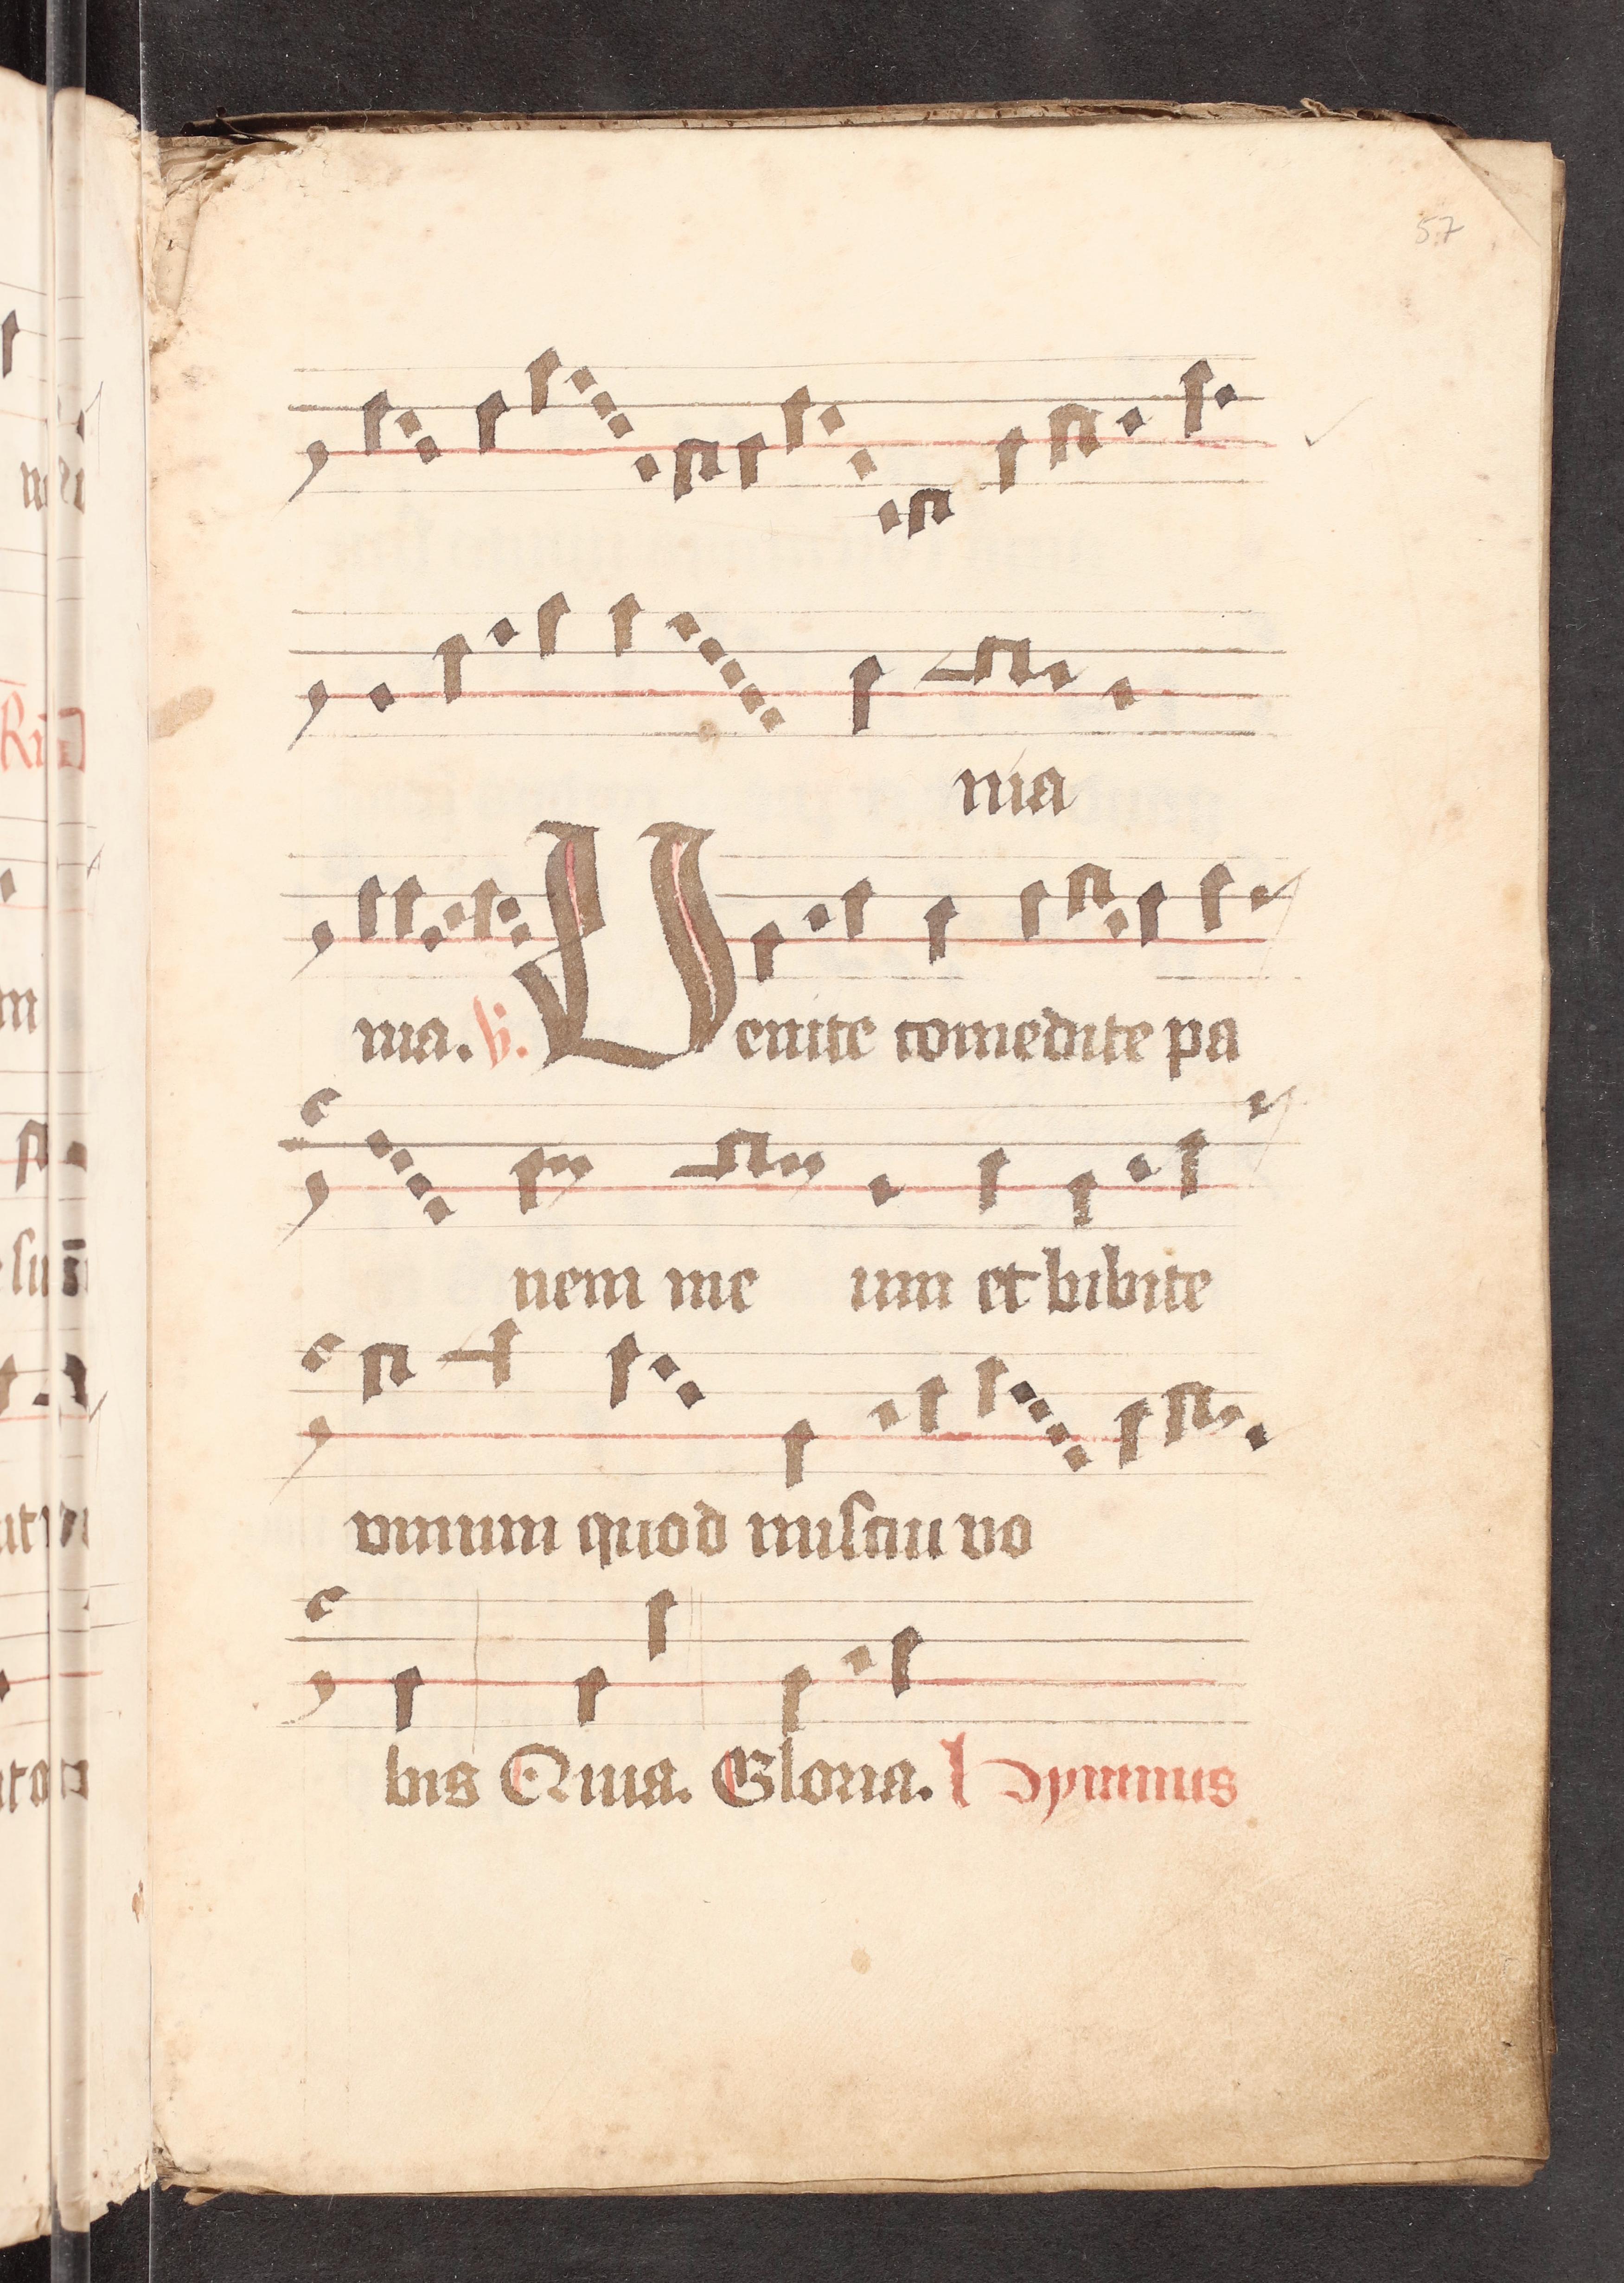 57
nia
nia. V. Uenite comedite pa
nem me um et bibite
vinum quod miscui vo
bis Quia. Gloria. Hymnus